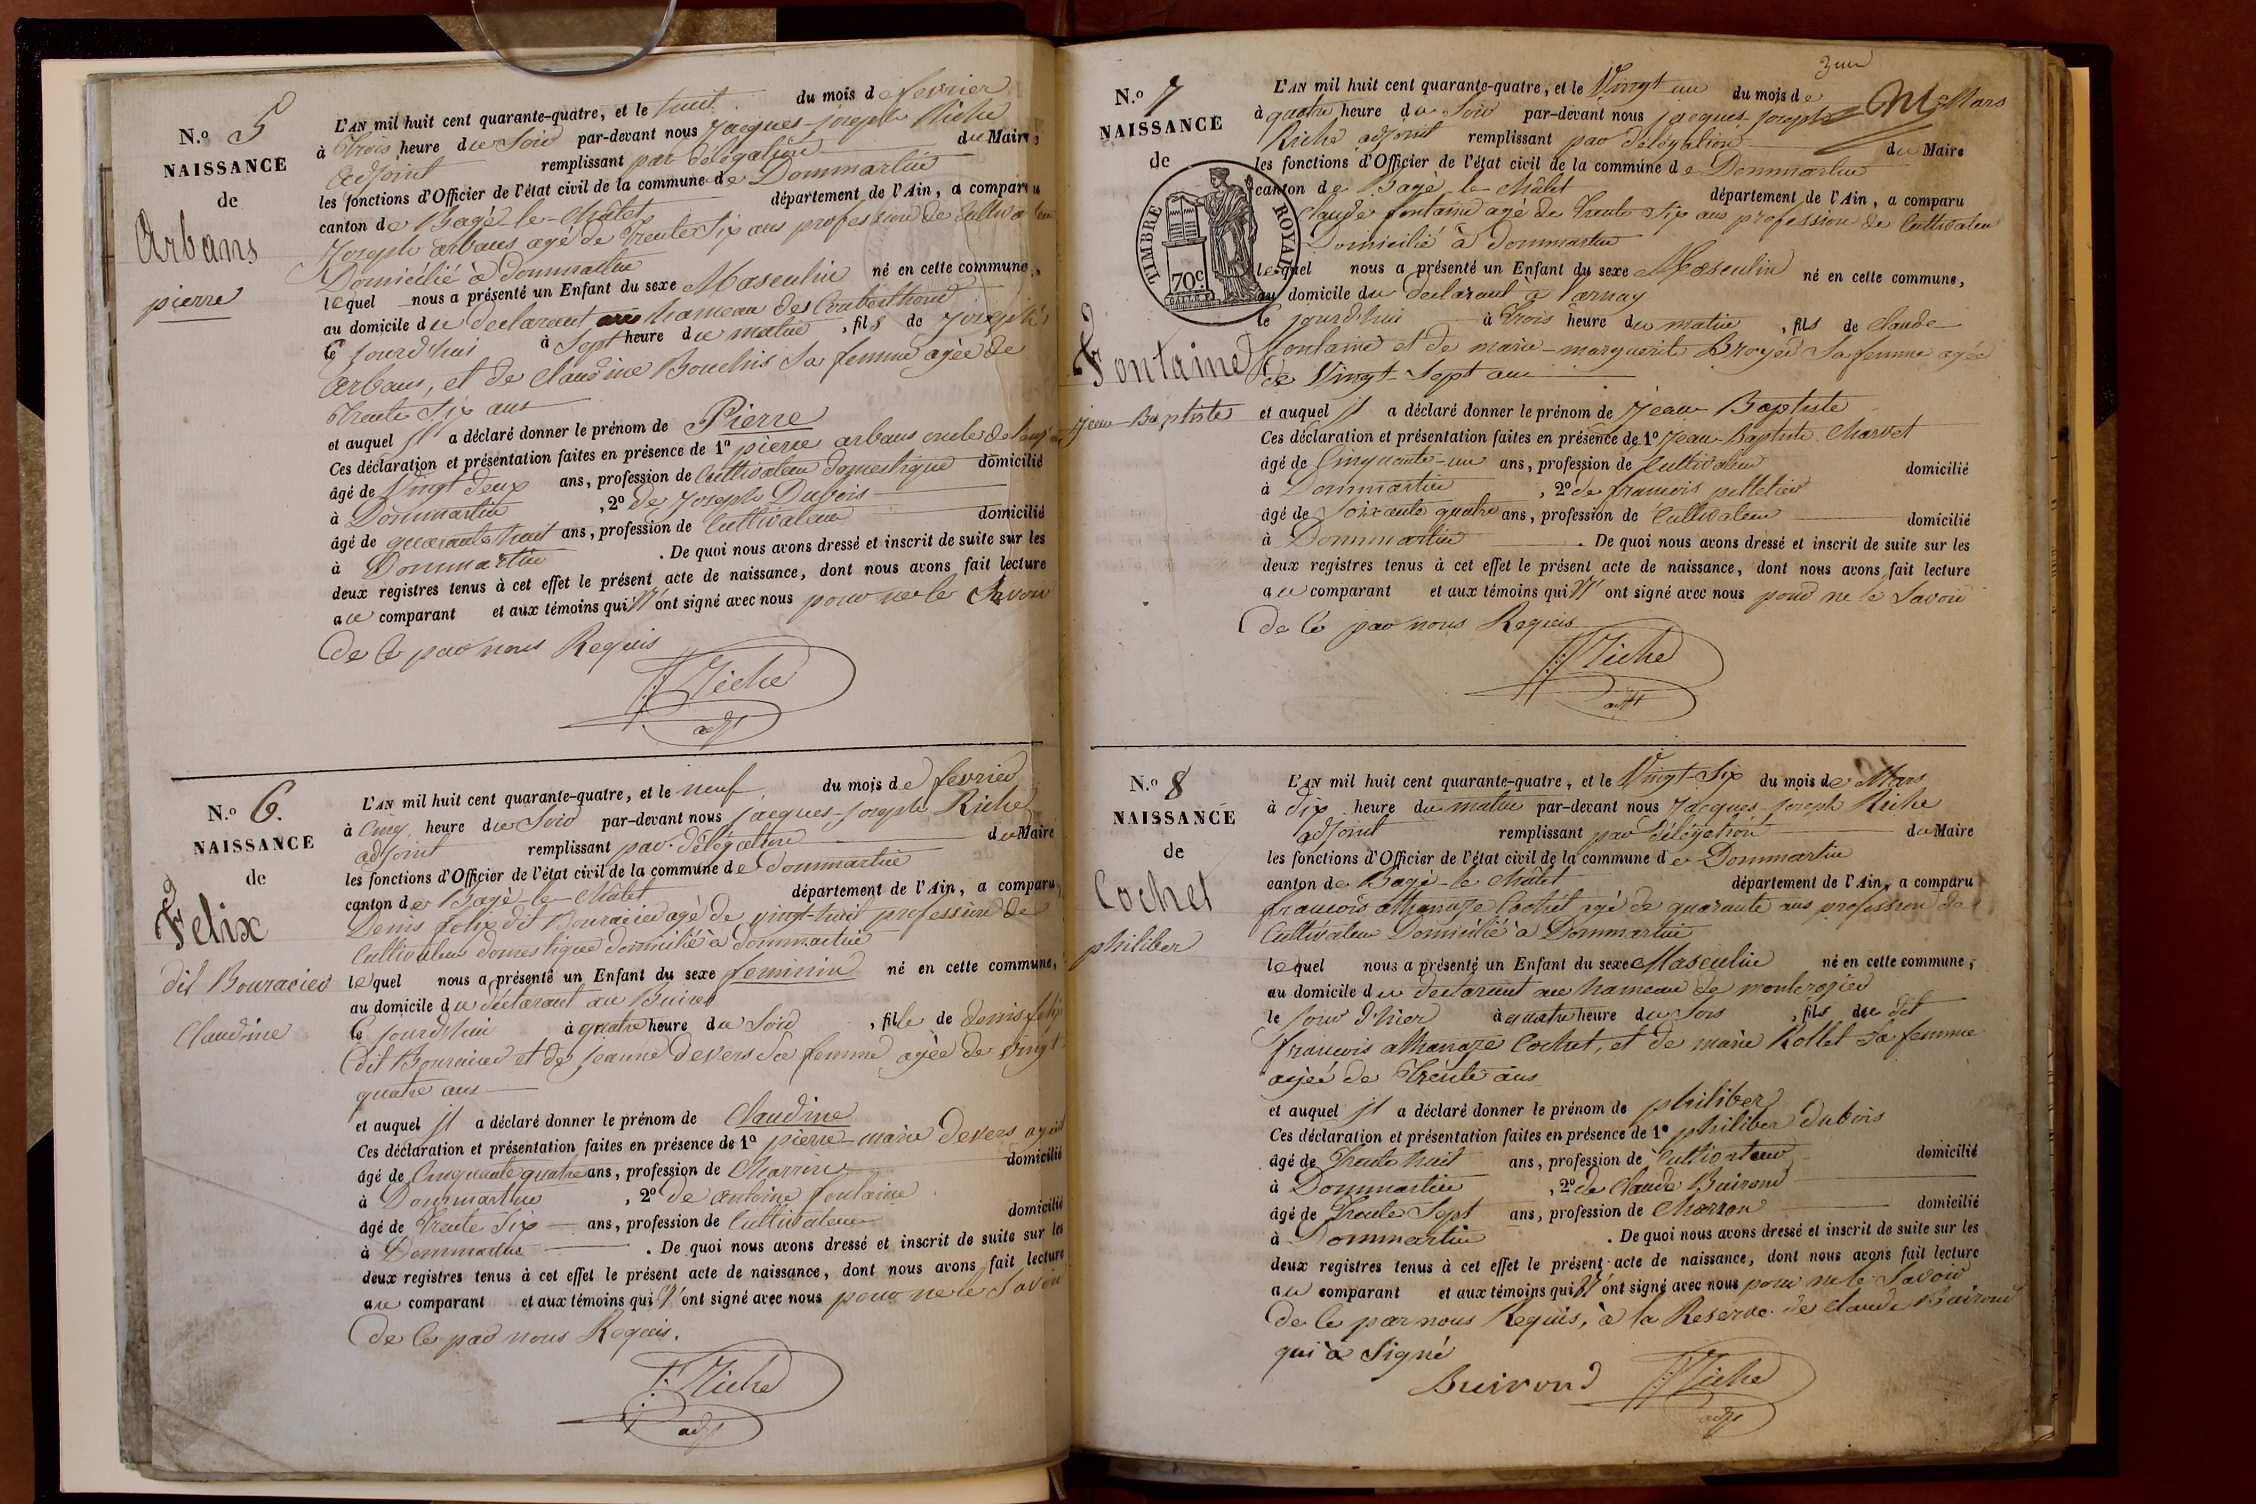 N.o 5
NAISSANCE
de
Arbans
pierre
L'AN mil huit cent quarante-quatre, et le huit du mois de fevrier
à trois heure du Soir par-devant nous Jacques-joseph Riche
adjoint remplissant par délégation du Maire,
les fonctions d'Officier de l'état civil de la commune de Dommartin
canton de Bagé-le-Châtel département de l'Ain, a comparu
Joseph arbans agé de trente Six ans profession de Cultivateur
Domicilié à dommartin
lequel nous a présenté un Enfant du sexe Masculin né en cette commune,
au domicile du declarant hameau des
le jourd'hui à Sept heure du matin, fils de joseph
arbans, et de claudine Bouchis Sa femme agée de
trente Six ans
et auquel il a déclaré donner le prénom de Pierre
Ces déclaration et présentation faites en présence de 1o pierre arbans oncle de
âgé de Vingt deux ans, profession de Cultivateur domestique domicilié
à Dommartin, 2o de Joseph Dubois
âgé de quarante huit ans, profession de Cultivateur domicilié
à Dommartin. De quoi nous avons dressé et inscrit de suite sur les
deux registres tenus à cet effet le présent acte de naissance, dont nous avons fait lecture
au comparant et aux témoins qui N'ont signé avec nous pour ne le Savoir
de Ce par nous Requis
J.J. Riche
adjt
N.o 6.
NAISSANCE
de
Felix
dit Bouracier
Claudine
L'AN mil huit cent quarante-quatre, et le neuf du mois de fevrier
à Cinq heure du Soir par-devant nous jacques-joseph Riche
adjoint remplissant par délégation du Maire
les fonctions d'Officier de l'état civil de la commune de Dommartin
canton de Bagé-le-Châtel département de l'Ain, a comparu
Denis felix dit Bouracier agé de vingt-huit profession de
Cultivateur domestique domicilié à dommartin
lequel nous a présenté un Enfant du sexe feminin né en cette commune,
au domicile du déclarant au
le jourd'hui à quatre heure du Soir, fille de denis felix
dit Bouracier et de jeanne devers Sa femme agée de vingt
quatre ans
et auquel il a déclaré donner le prénom de Claudine
Ces déclaration et présentation faites en présence de 1o pierre-marie Devers
âgé de Cinquante quatre ans, profession de domicilié
à Dommartin, 2o de antoine fontaine
âgé de trente Six ans, profession de Cultivateur domicilié
à Dommartin. De quoi nous avons dressé et inscrit de suite sur les
deux registres tenus à cet effet le présent acte de naissance, dont nous avons fait lecture
au comparant et aux témoins qui N'ont signé avec nous pour ne le Savoir
de Ce par nous Requis.
J.J. Riche
adjt
N.o 7
NAISSANCE
de
TIMBRE ROYAL
70c.
Fontaine
jean-Baptiste
L'AN mil huit cent quarante-quatre, et le Vingt un du mois de Mars
à quatre heure du Soir par-devant nous jacques-joseph
Riche adjoint remplissant par délégation du Maire
les fonctions d'Officier de l'état civil de la commune de Dommartin
canton de Bagé-le-châtel département de l'Ain, a comparu
Claude fontaine agé de trente Six ans profession de Cultivateur
Domicilié à dommartin
lequel nous a présenté un Enfant du sexe Masculin né en cette commune,
au domicile du declarant à
le jourd'hui à trois heure du matin, fils de claude
fontaine et de marie-marguerite Broyer Sa femme agée
de Vingt-Sept ans
et auquel il a déclaré donner le prénom de jean Baptiste
Ces déclaration et présentation faites en présence de 1o jean-Baptiste Charvet
âgé de Cinquante-un ans, profession de Cultivateur domicilié
à Dommartin, 2o de francois pelletier
âgé de Soixante quatre ans, profession de Cultivateur domicilié
à Dommartin. De quoi nous avons dressé et inscrit de suite sur les
deux registres tenus à cet effet le présent acte de naissance, dont nous avons fait lecture
au comparant et aux témoins qui N'ont signé avec nous pour ne le Savoir
de Ce par nous Requis
J.J. Riche
adjt
N.o 8
NAISSANCE
de
Cochet
philiber
L'AN mil huit cent quarante-quatre, et le Vingt-Six du mois de Mars
à dix heure du matin par-devant nous Jacques-joseph Riche
adjoint remplissant par délégation du Maire
les fonctions d'Officier de l'état civil de la commune de Dommartin
canton de Bagé-le Châtel département de l'Ain, a comparu
francois athanaze Cochet agé de quarante ans profession de
Cultivateur Domicilié à Dommartin
lequel nous a présenté un Enfant du sexe Masculin né en cette commune,
au domicile du declarant au hameau de montcrozier
le jour d'hier à quatre heure du Soir, fils du dit
francois athanaze Cochet, et de marie Rollet Sa femme
agée de trente ans
et auquel il a déclaré donner le prénom de philiber
Ces déclaration et présentation faites en présence de 1o philiber dubois
âgé de trente huit ans, profession de Cultivateur domicilié
à Dommartin, 2o de claude Buirond
âgé de trente Sept ans, profession de Charron domicilié
à Dommartin. De quoi nous avons dressé et inscrit de suite sur les
deux registres tenus à cet effet le présent acte de naissance, dont nous avons fait lecture
au comparant et aux témoins qui N'ont signé avec nous pour ne le Savoir
de Ce par nous Requis, à la Reserve de claude Buirond
qui a Signé
Buirond J.J. Riche
adjt